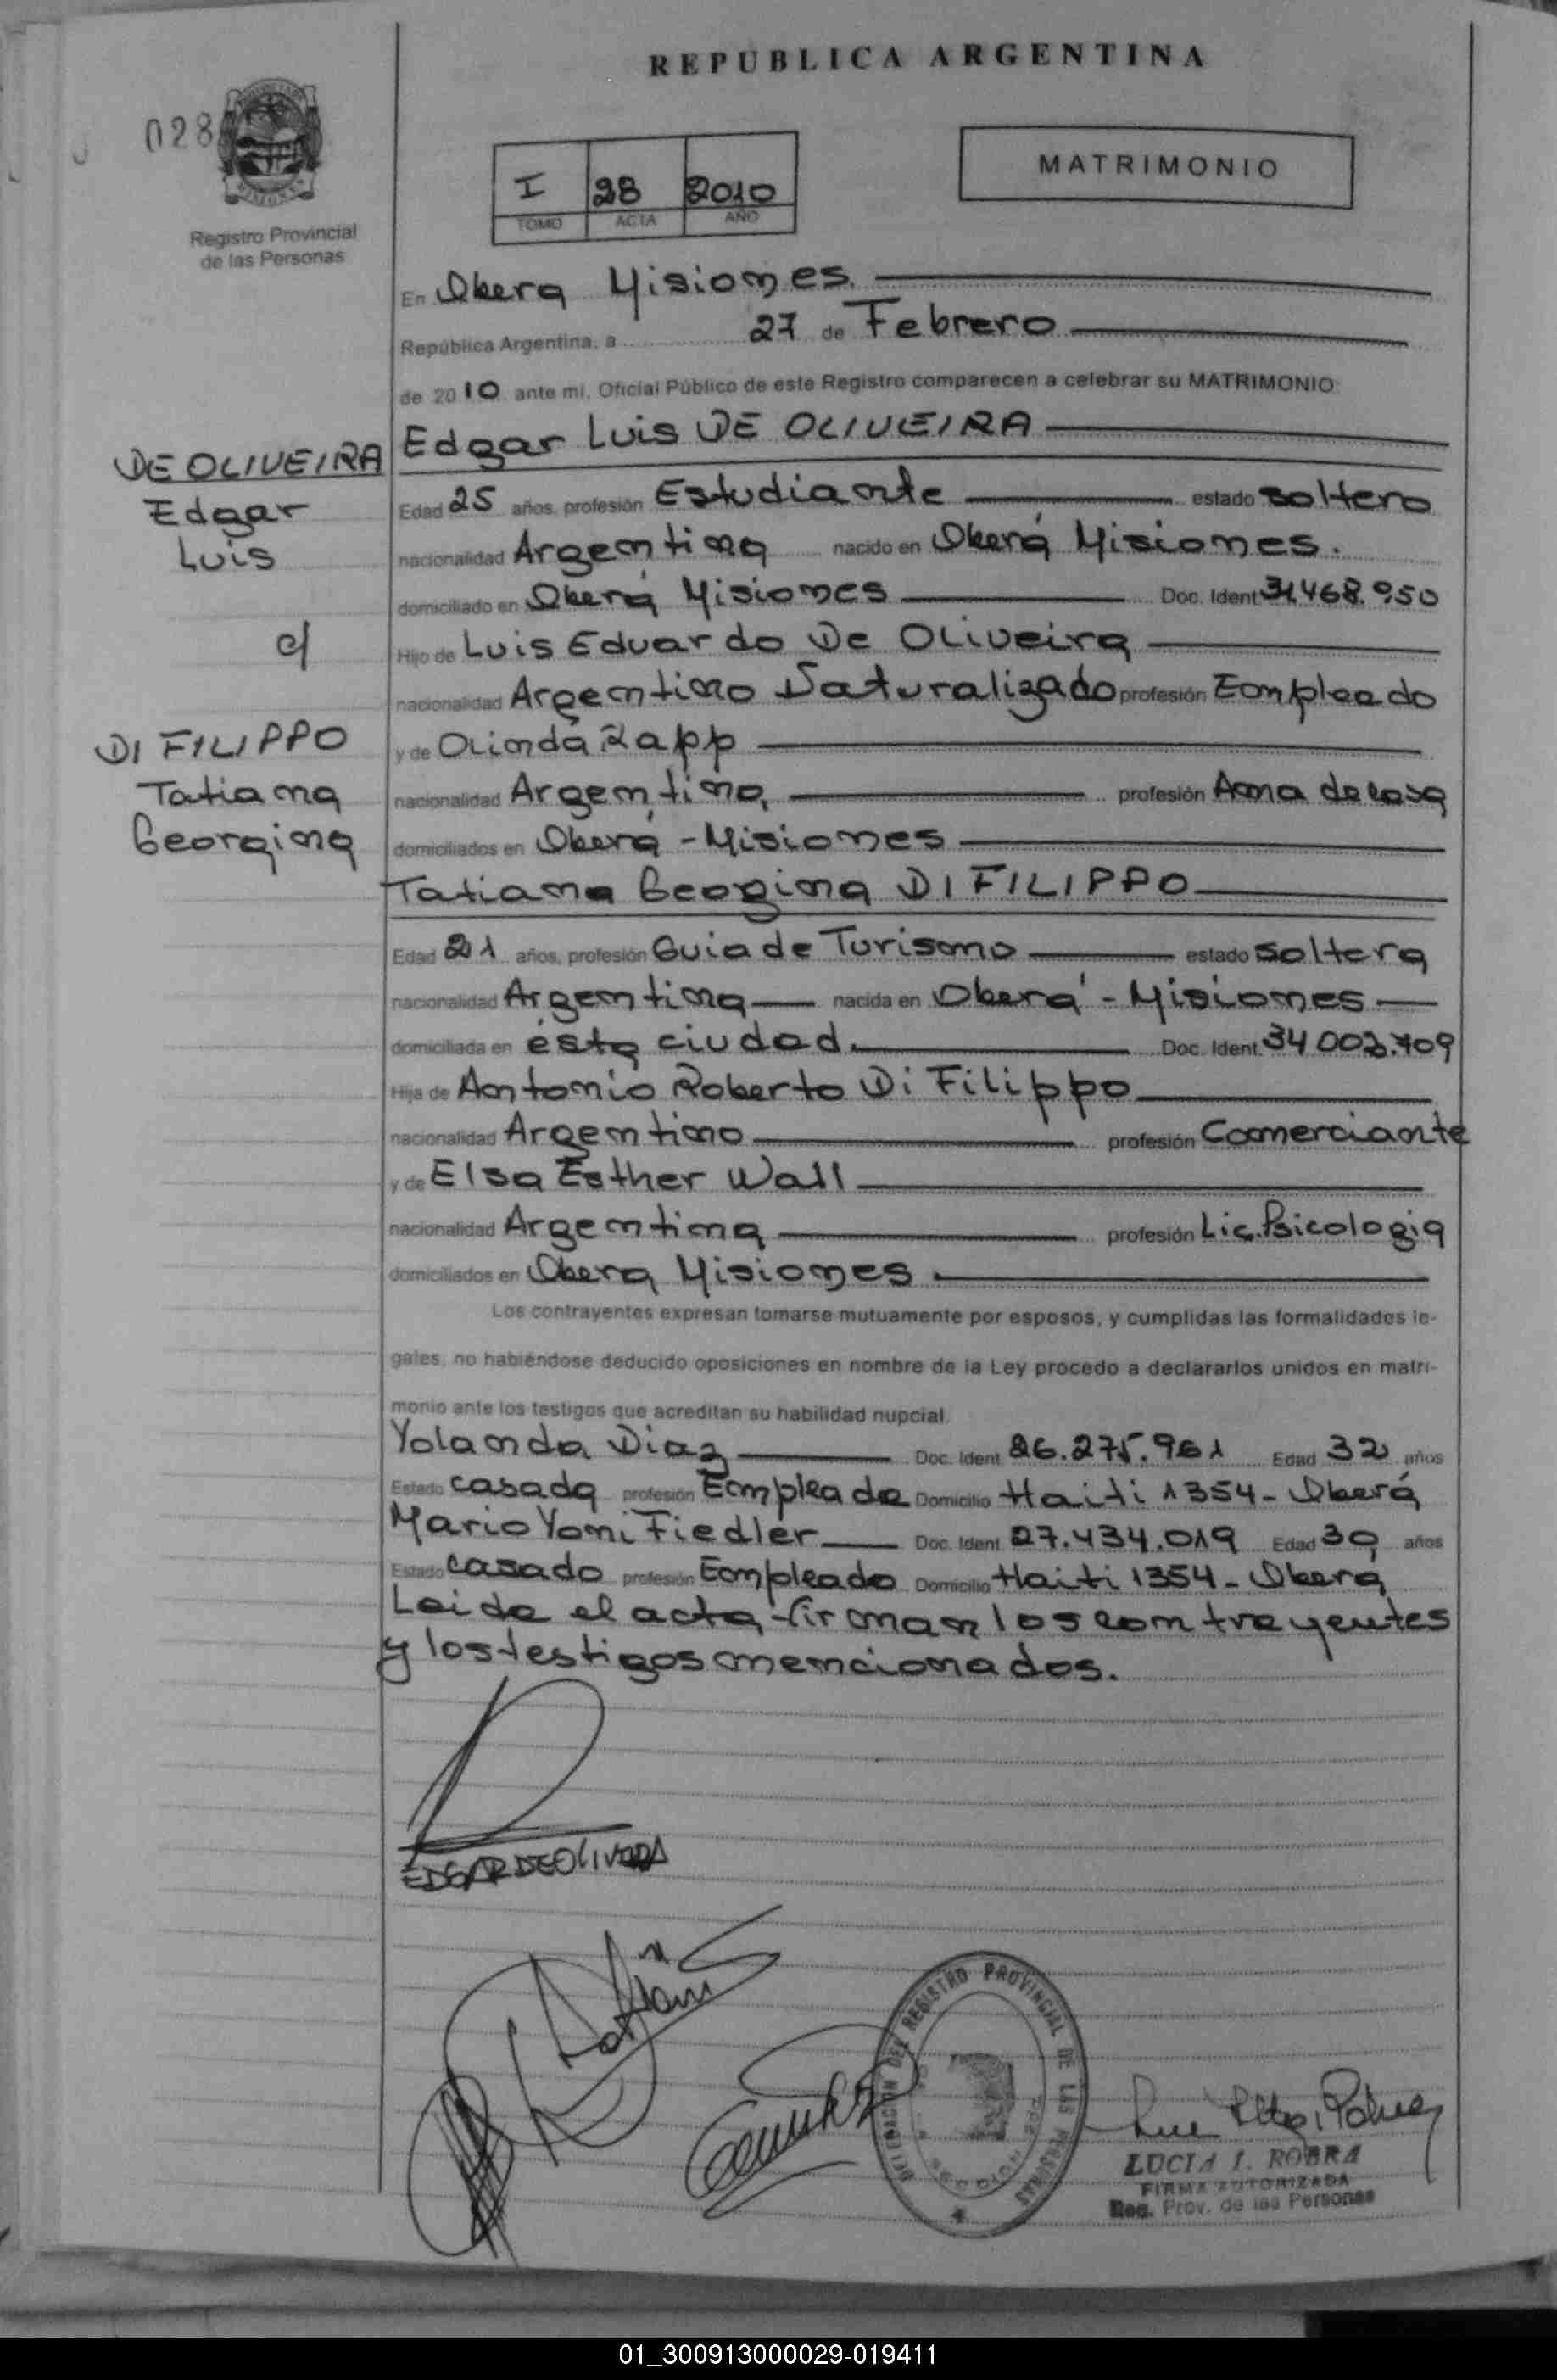 REPUBLICA ARGENTINA
028
MATRIMONIO
I 28 2010
TOMO ACTA AÑO
Registro Provincial
de las Personas
En Obera Misiones.
República Argentina, a 27 de Febrero
de 2010 ante mi, Oficial Público de este Registro comparecen a celebrar su MATRIMONIO:
Edgar Luis DE OLIVEIRA
DE OLIVEIRA
Edgar
Luis
c/
DI FILIPPO
Tatiana
Georgina
Edad 25 años, profesión Estudiante estado soltero
nacionalidad Argentina nacido en Oberá Misiones.
domiciliado en Oberá Misiones Doc. Ident. 31.468.950
Hijo de Luis Eduardo De Oliveira
nacionalidad Argentino Naturalizado profesión Empleado
y de Olinda Rapp
nacionalidad Argentina, profesión Ama de casa
domiciliados en Oberá - Misiones
Tatiana Geogina DI FILIPPO
Edad 21 años, profesión Guia de Turismo estado soltera
nacionalidad Argentina nacida en Oberá - Misiones
domiciliada en ésta ciudad. Doc. Ident. 34.003.709
Hija de Antonio Roberto Di Filippo
nacionalidad Argentino profesión Comerciante
y de Elsa Esther Wall
nacionalidad Argentina profesión Lic. Psicologia
domiciliados en Obera Misiones
Los contrayentes expresan tomarse mutuamente por esposos, y cumplidas las formalidades le-
gales, no habiéndose deducido oposiciones en nombre de la Ley procedo a declararlos unidos en matri-
monio ante los testigos que acreditan su habilidad nupcial.
Yolanda Diaz Doc. Ident. 26.275.961 Edad 32 años
Estado casada profesión Empleada Domicilio Haiti 1354 - Oberá
Mario Yoni Fiedler Doc. Ident. 27.434.019 Edad 30 años
Estado casado profesión Empleado Domicilio Haiti 1354 - Obera
Leida el acta firman los contrayentes
y los testigos mencionados.
EDGAR DE OLIVEIRA
DELEGACION DEL REGISTRO PROVINCIAL DE LAS PERSONAS
LUCIA I. ROBRA
FIRMA AUTORIZADA
Reg. Prov. de las Personas
01_300913000029-019411